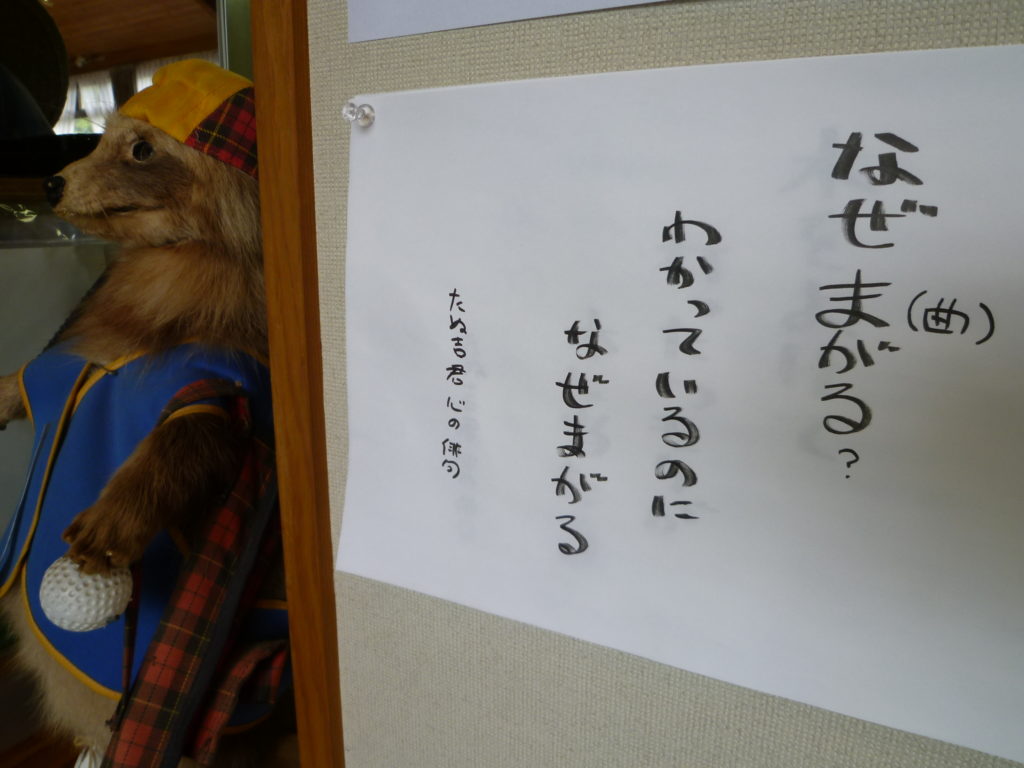 なぜまがる?
(曲)
わかっているのに
なぜまがる
たぬ吉君心の俳句